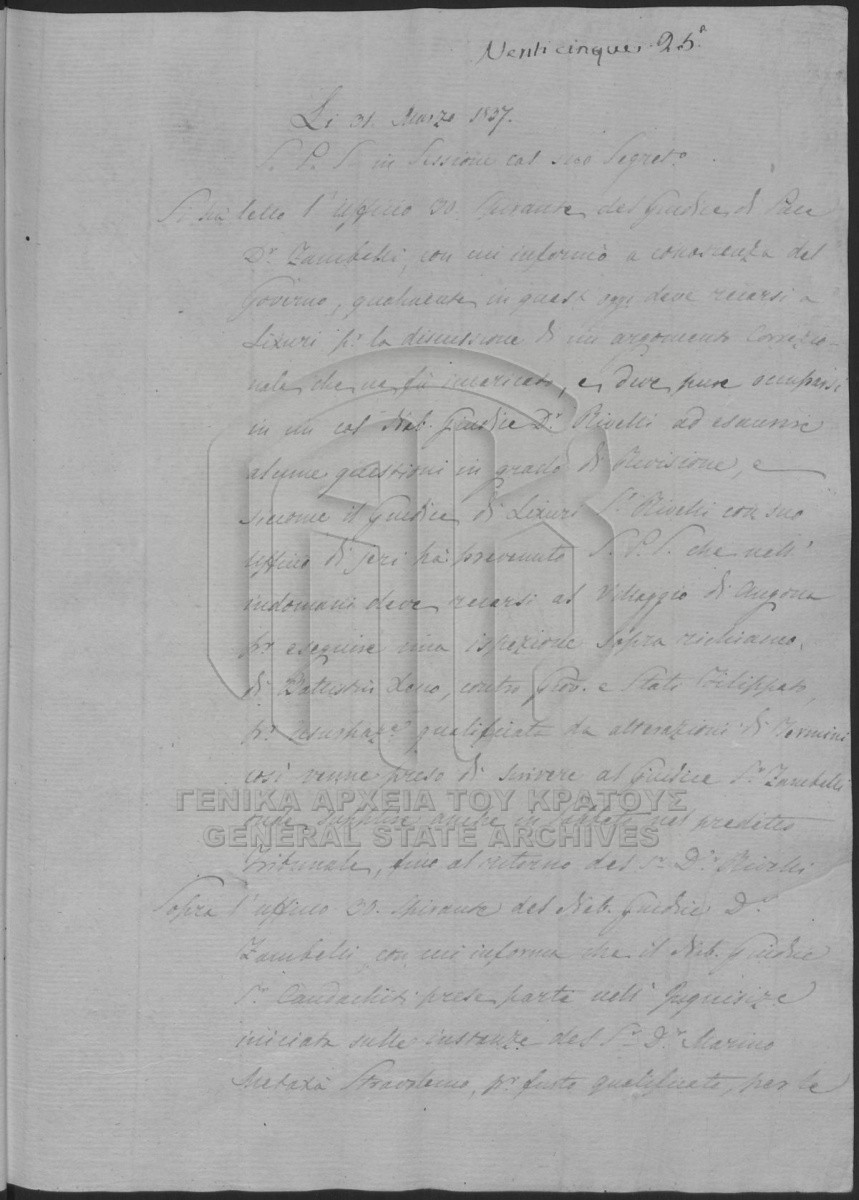 Venticinque 25.ª
Li 31. Marzo 1837.
S. P. S. in Sessione col suo Segret.º
Si hà letto l'Uffizio 30. spirante del Giudice di Pace
D.r Zambelli, con cui informò a conoscenza del
Governo, qualmente in quest' oggi deve recarsi a
Lixuri p.r la discussione di un argomento Correzio-
nale che ne fù incaricato, e deve pure occuparsi
in un col Nob. Giudice D.r Rivelli ad esaurire
alcune questioni in grado di Revisione, e
siccome il Giudice di Lixuri S.r Rivelli con suo
Uffizio di jeri hà prevenuto S. P. S. che nell'
indomani deve recarsi al Villaggio di Angona
p.r eseguire una ispezione sopra richiamo,
di Battestin, contro Giov. e Stati Filippato,
p.r usurpaz.e qualificata da alterazioni di Termini
così venne preso di scrivere al Giudice S.r Zambelli
onde supplire anche in Sabbato nel predetto
Tribunale, fino al ritorno del S.r D.r Rivelli
Sopra l'uffizio 30. spirante del Nob. Giudice D.r
Zambelli, con cui informa che il Nob. Giudice
S.r prese parte nell' Inquisiz.e
iniciata sulle instanze del S.r D.r Marino
Metaxà, p.r furto qualificato, per le
ΓΕΝΙΚΑ ΑΡΧΕΙΑ ΤΟΥ ΚΡΑΤΟΥΣ
GENERAL STATE ARCHIVES